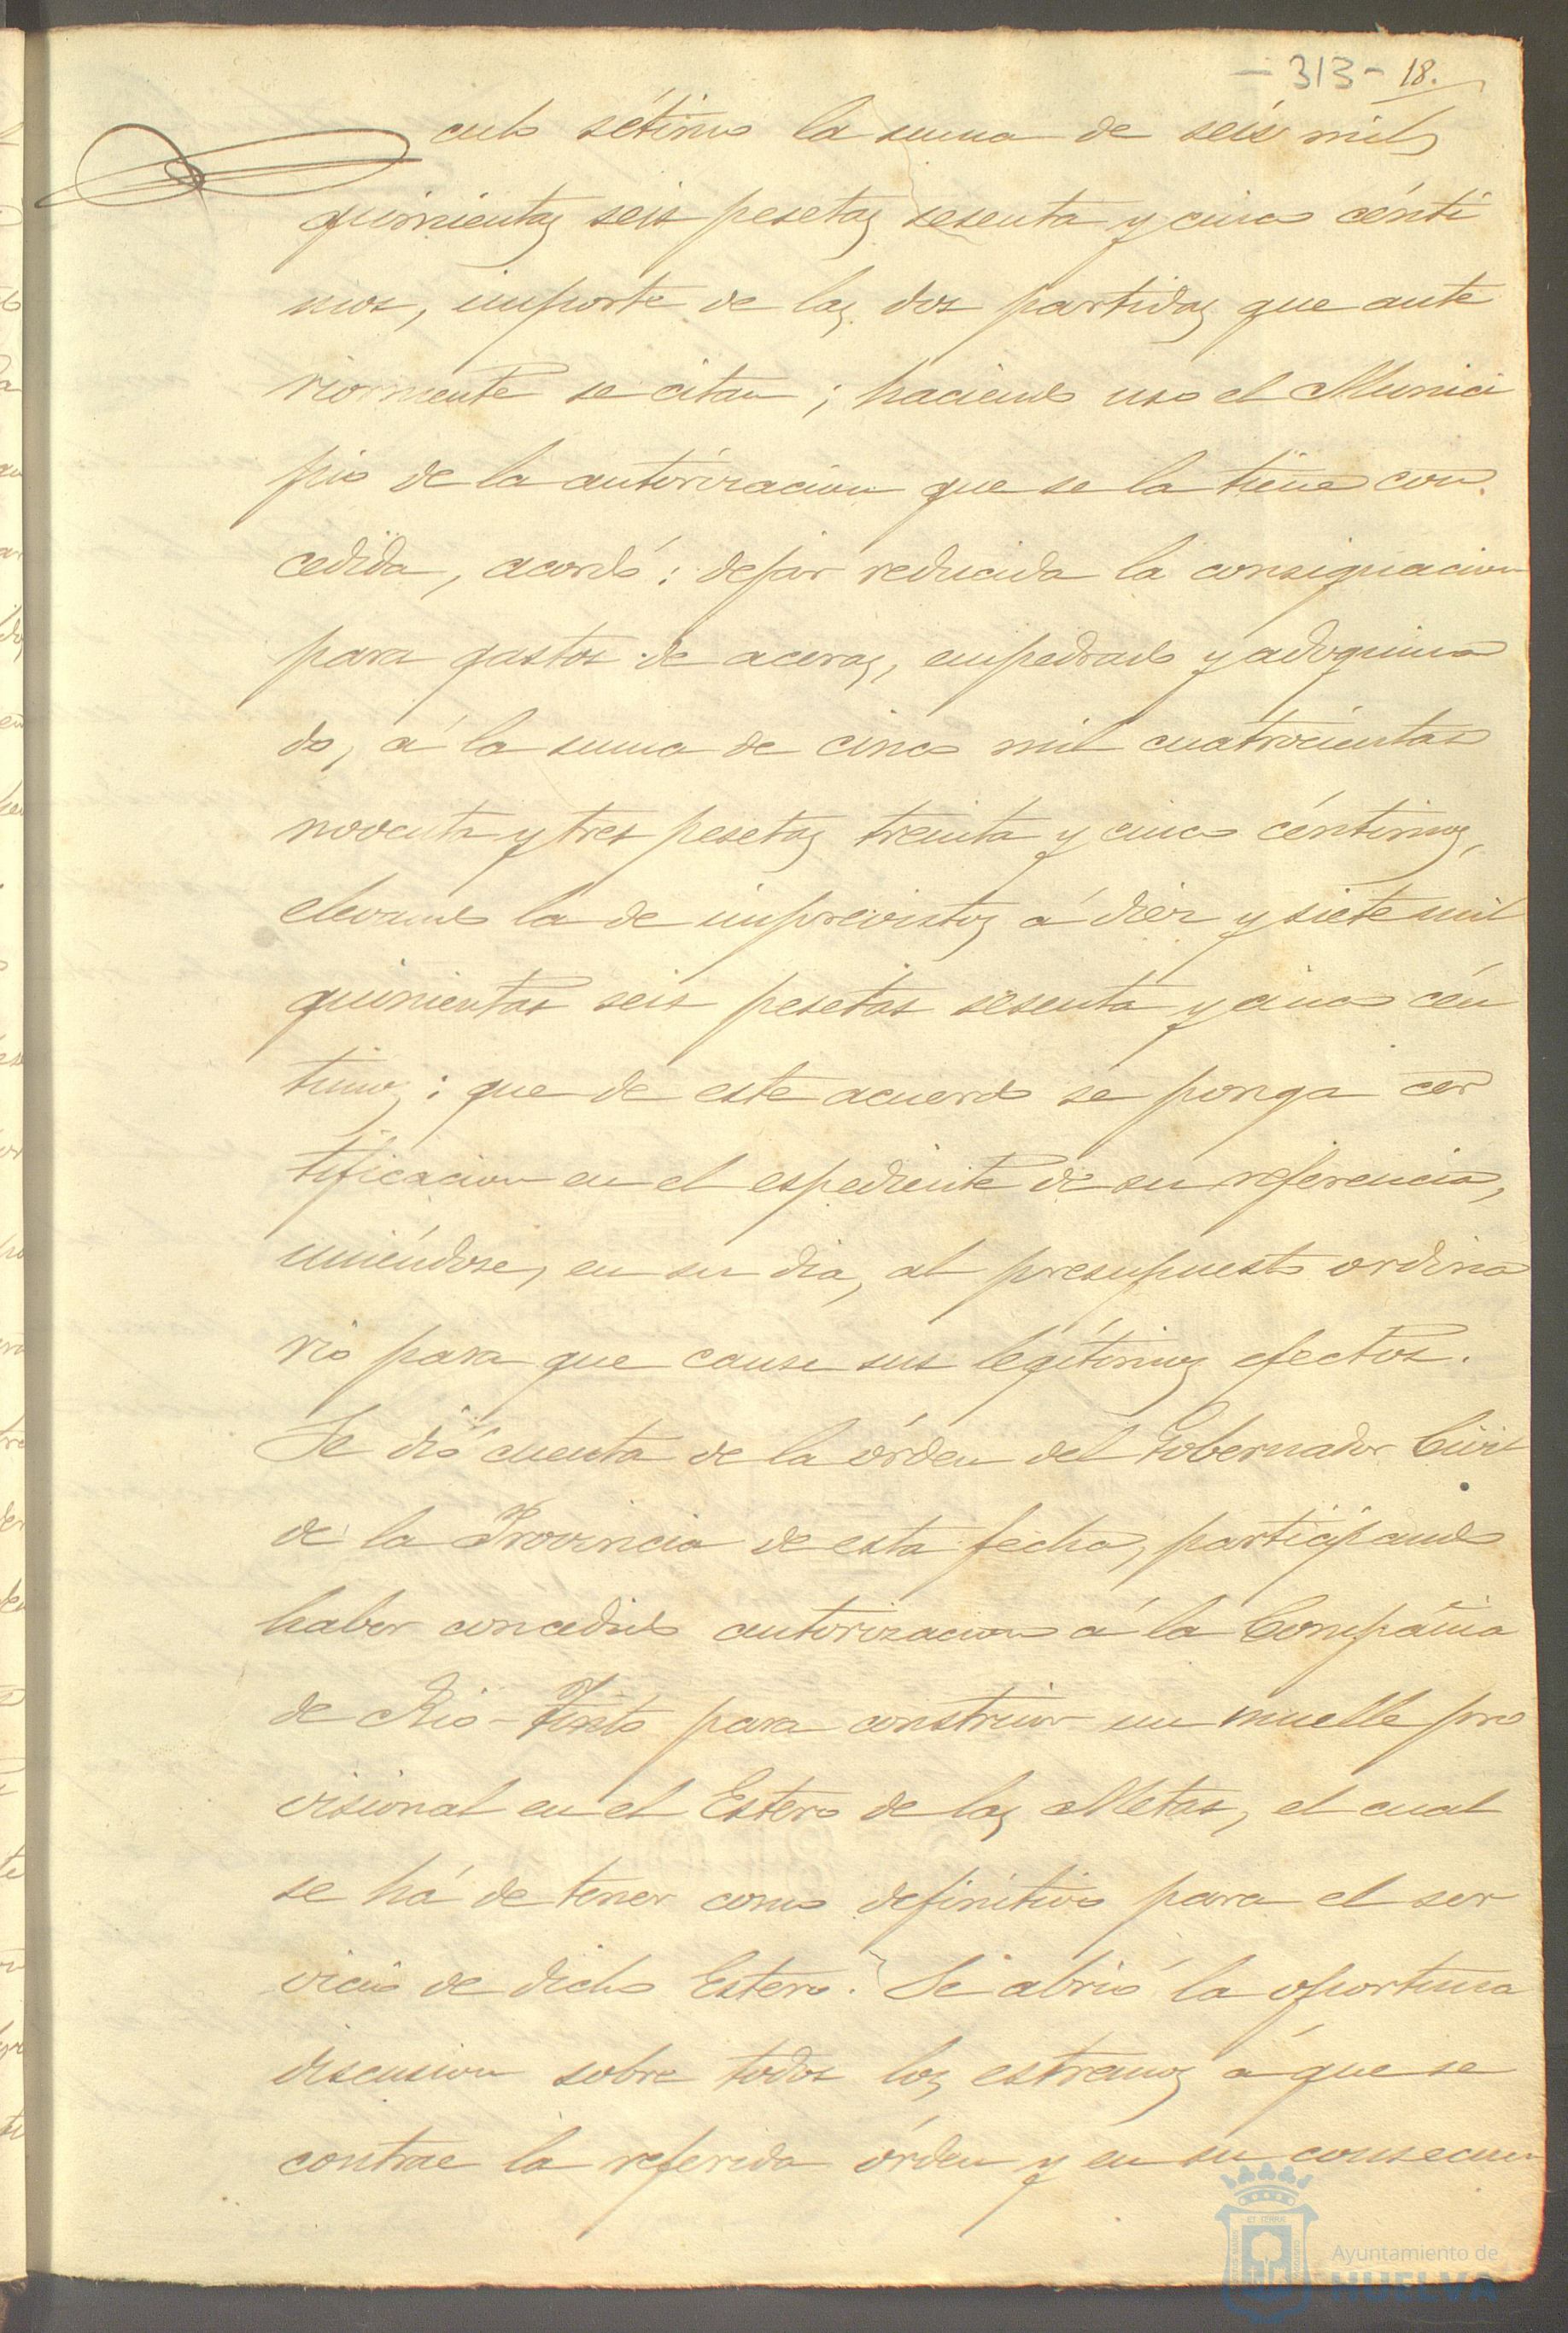 - 313 - 18.
culo sétimo la suma de seis mil
quinientas seis pesetas sesenta y cinco cénti
mos, importe de las dos partidas que ante
riormente se citan; haciendo uso el Munici
pio de la autorizacion que se la tiene con
cedida, acordó: dejar reducida la consignacion
para gastos de aceras, empedrado y adoquina
do, á la suma de cinco mil cuatrocientas
noventa y tres pesetas treinta y cinco céntimos,
elevando la de imprevistos á diez y siete mil
quinientas seis pesetas sesenta y cinco cén
timos; que de este acuerdo se ponga cer
tificacion en el espediente de su referencia,
uniéndose, en su dia, al presupuesto ordina
rio para que cause sus legítimos efectos.
Se dió cuenta de la órden del Gobernador Civil
de la Provincia de esta fecha, participando
haber concedido autorizacion á la Compañia
de Rio-Tinto para construir un muelle pro
visional en el Estero de las Metas, el cual
se há de tener como definitivo para el ser
vicio de dicho Estero. Se abrió la oportuna
discusion sobre todos los estremos á que se
contrae la referida órden y en su consecuen
Ayuntamiento de
HUELVA